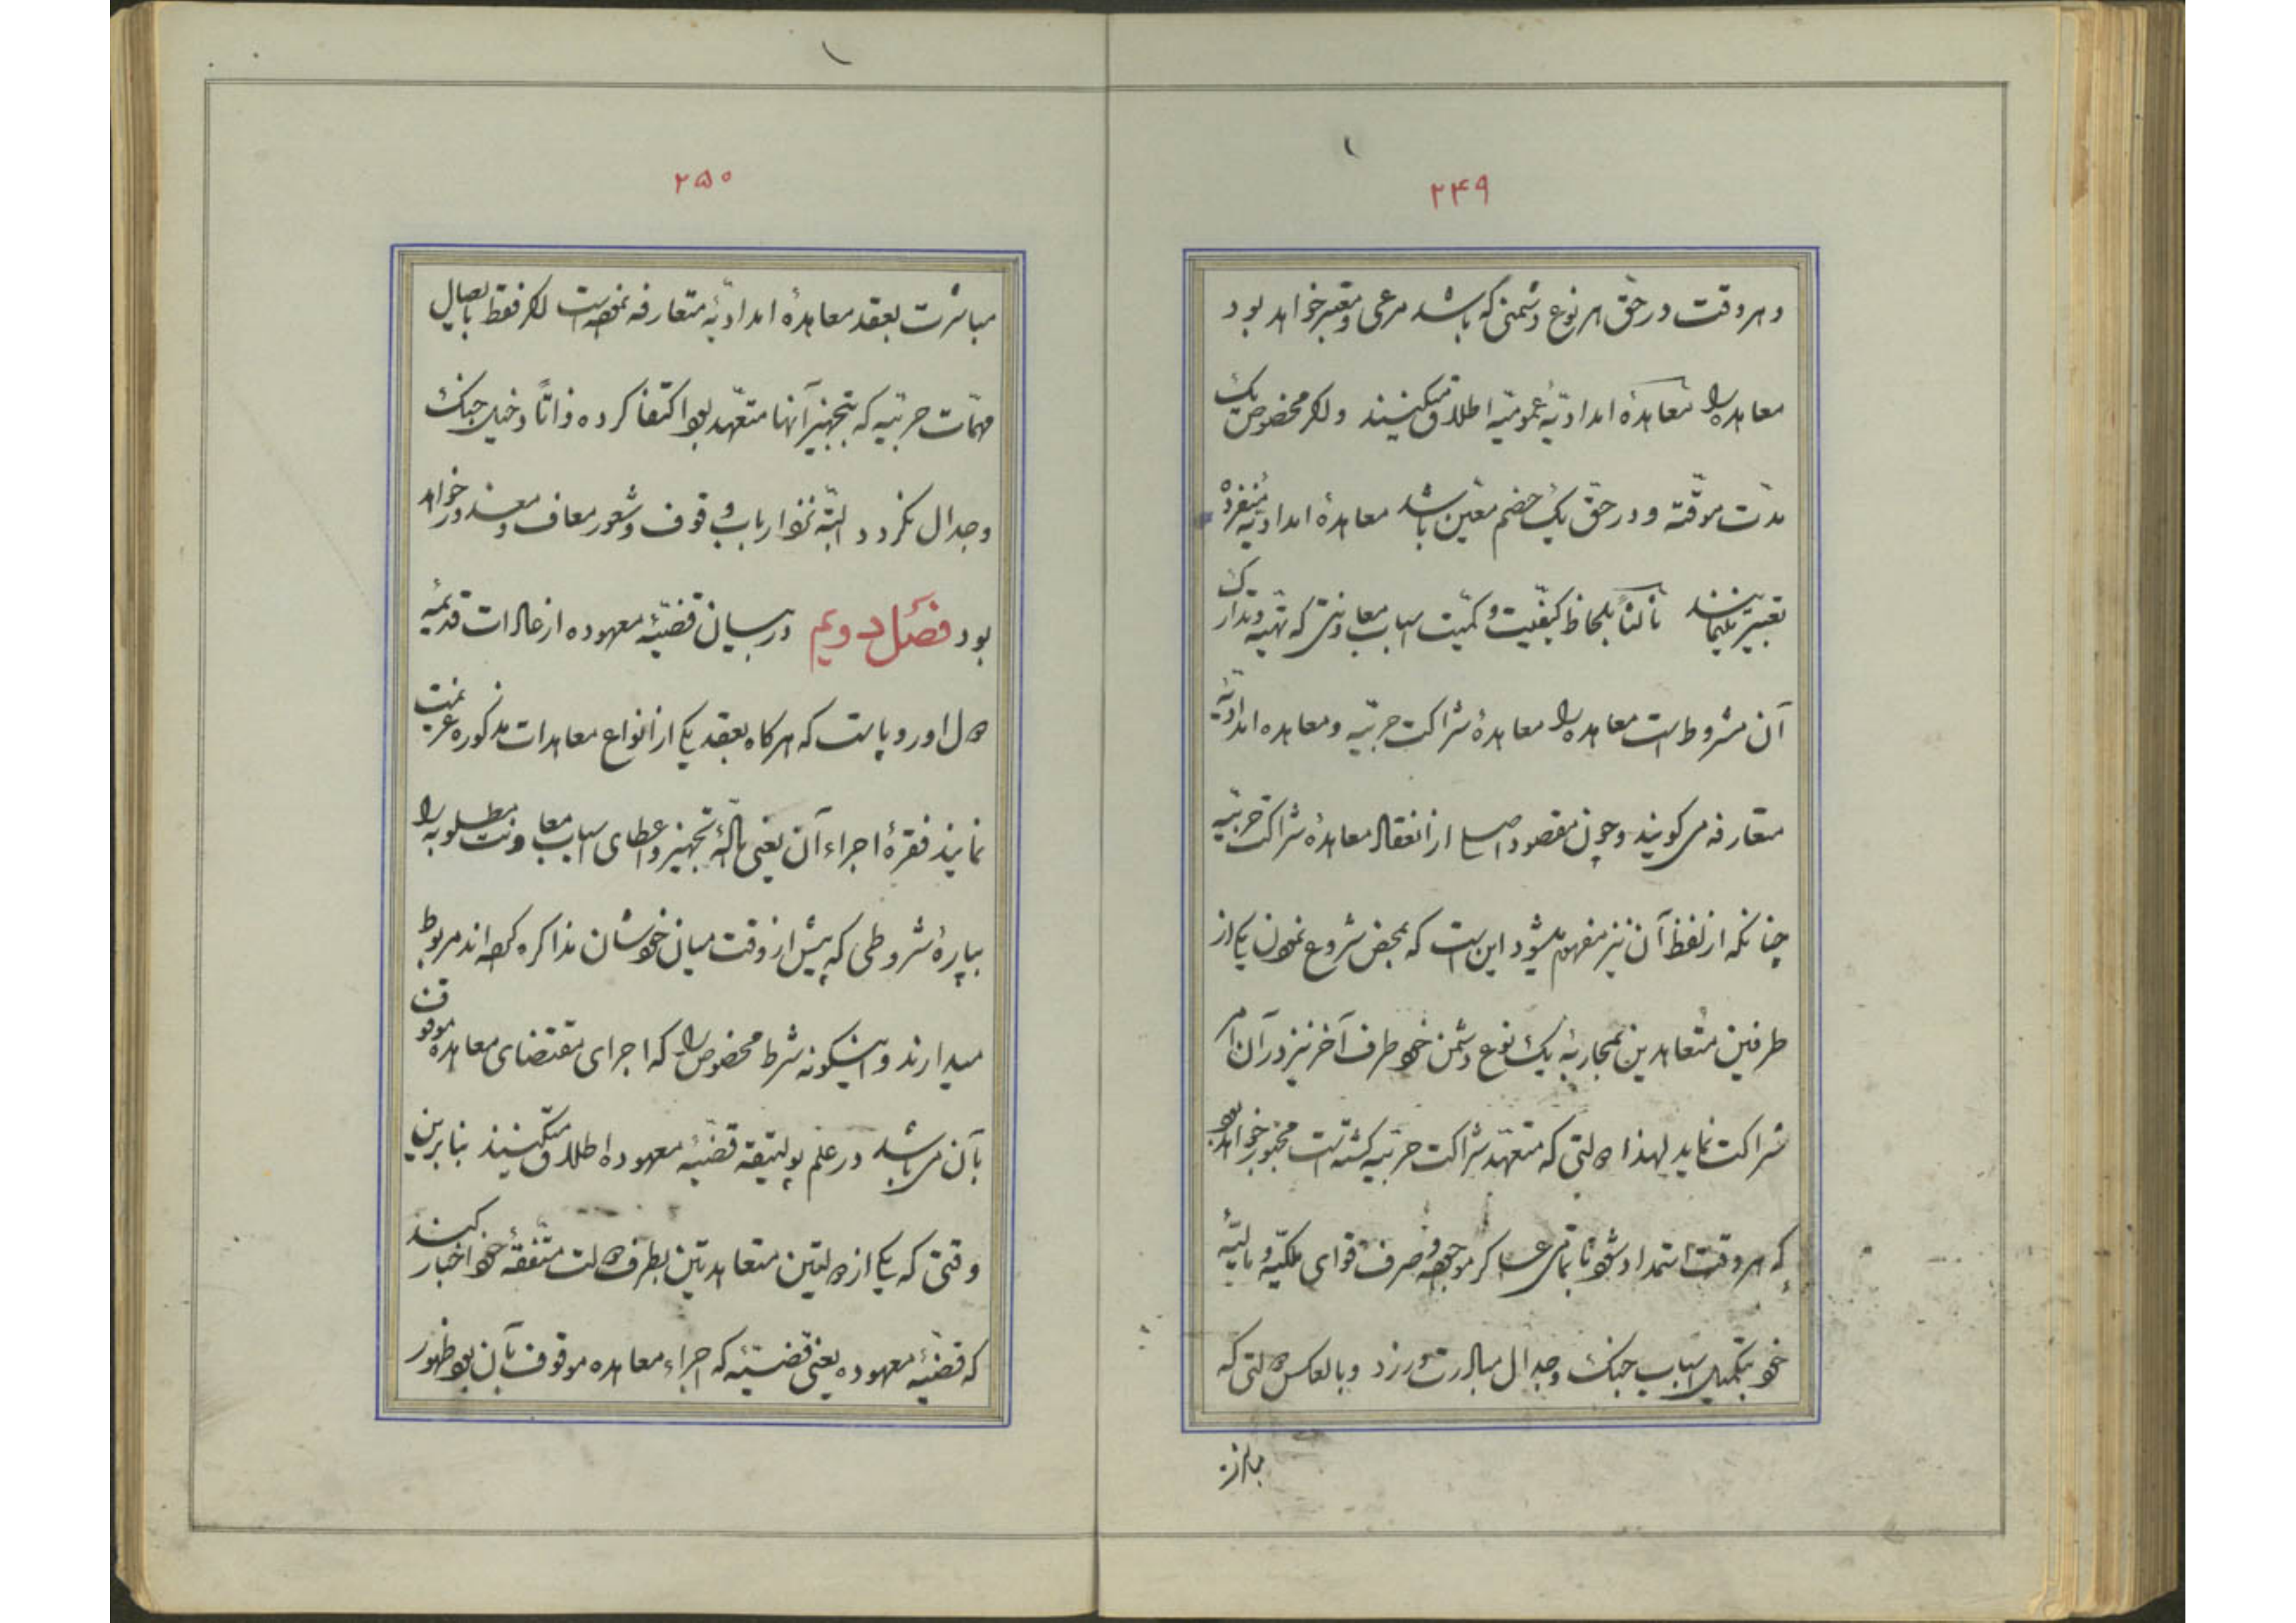 ۲۴۹
و هر وقت در حق هر نوع دشمنی که باشد مرعی و معتبر خواهد بود
معاهده را معاهدهٔ امدادیّهٔ عمومیّه اطلاق میکنند و لکن مخصوص یک
مدّت موقّته و در حقّ یک خصم معیّن باشد معاهدهٔ امدادیّهٔ منفرده
تعبیر مینمایند ثالثاً بلحاظ کیفیّت و کمیّت اسباب معاونتی که تهیّه و تدارک
آن مشروط است معاهده را معاهدهٔ شراکت حربیّه و معاهده امدادیّهٔ
متعارفه می کویند و چون مقصود اصلی از انعقاد معاهدهٔ شراکت حربیّه
چنانکه از لفظ آن نیز مفهوم میشود این است که بمحض شروع نمودن یکی از
طرفین متعاهدین بمحاربهٔ یک نوع دشمن خود طرف آخر نیز در آن امر
شراکت نماید لهذا دولتی که متعهّد شراکت حربیّه کشته است مجبور خواهد بود
که هر وقت استمداد شود با تمامی عساکر موجوده و صرف قوای ملکیّه و مالیّهٔ
خود بتکمیل اسباب جنک و جدال مبادرت ورزد و بالعکس دولتی که
۲۵۰
مباشرت بعقد معاهدهٔ امدادیّهٔ متعارفه نموده است لکن فقط بایصال
مهمّات حربیّه که بتجهیز آنها متعهّد بود اکتفا کرده ذاتاً دخیل جنک
و جدال نکردد البتّه نزد ارباب وقوف و شعور معاف و معذور خواهد
بود فصل دویم در بیان قضیّهٔ معهوده از عادات قدیمهٔ
دول اوروپاست که هرکاه بعقد یکی از انواع معاهدات مذکوره عزیمت
نمایند فقرهٔ اجراء آن یعنی مسألهٔ تجهیز و اعطای اسباب معاونت مطلوبه را
بپارهٔ شروطی که پیش از وقت میان خودشان مذاکره کرده اند مربوط
میدارند و اینکونه شرط مخصوص را که اجرای مقتضای معاهده موقوف
بآن می باشد در علم پولتیقه قضیّهٔ معهوده اطلاق میکنند بنابرین
وقتی که یکی از دولتین متعاهدتین بطرف دولت متّفقهٔ خود اخبار کند
که قضیّهٔ معهوده یعنی قضیّهٔ که اجراء معاهده موقوف بآن بود ظهور